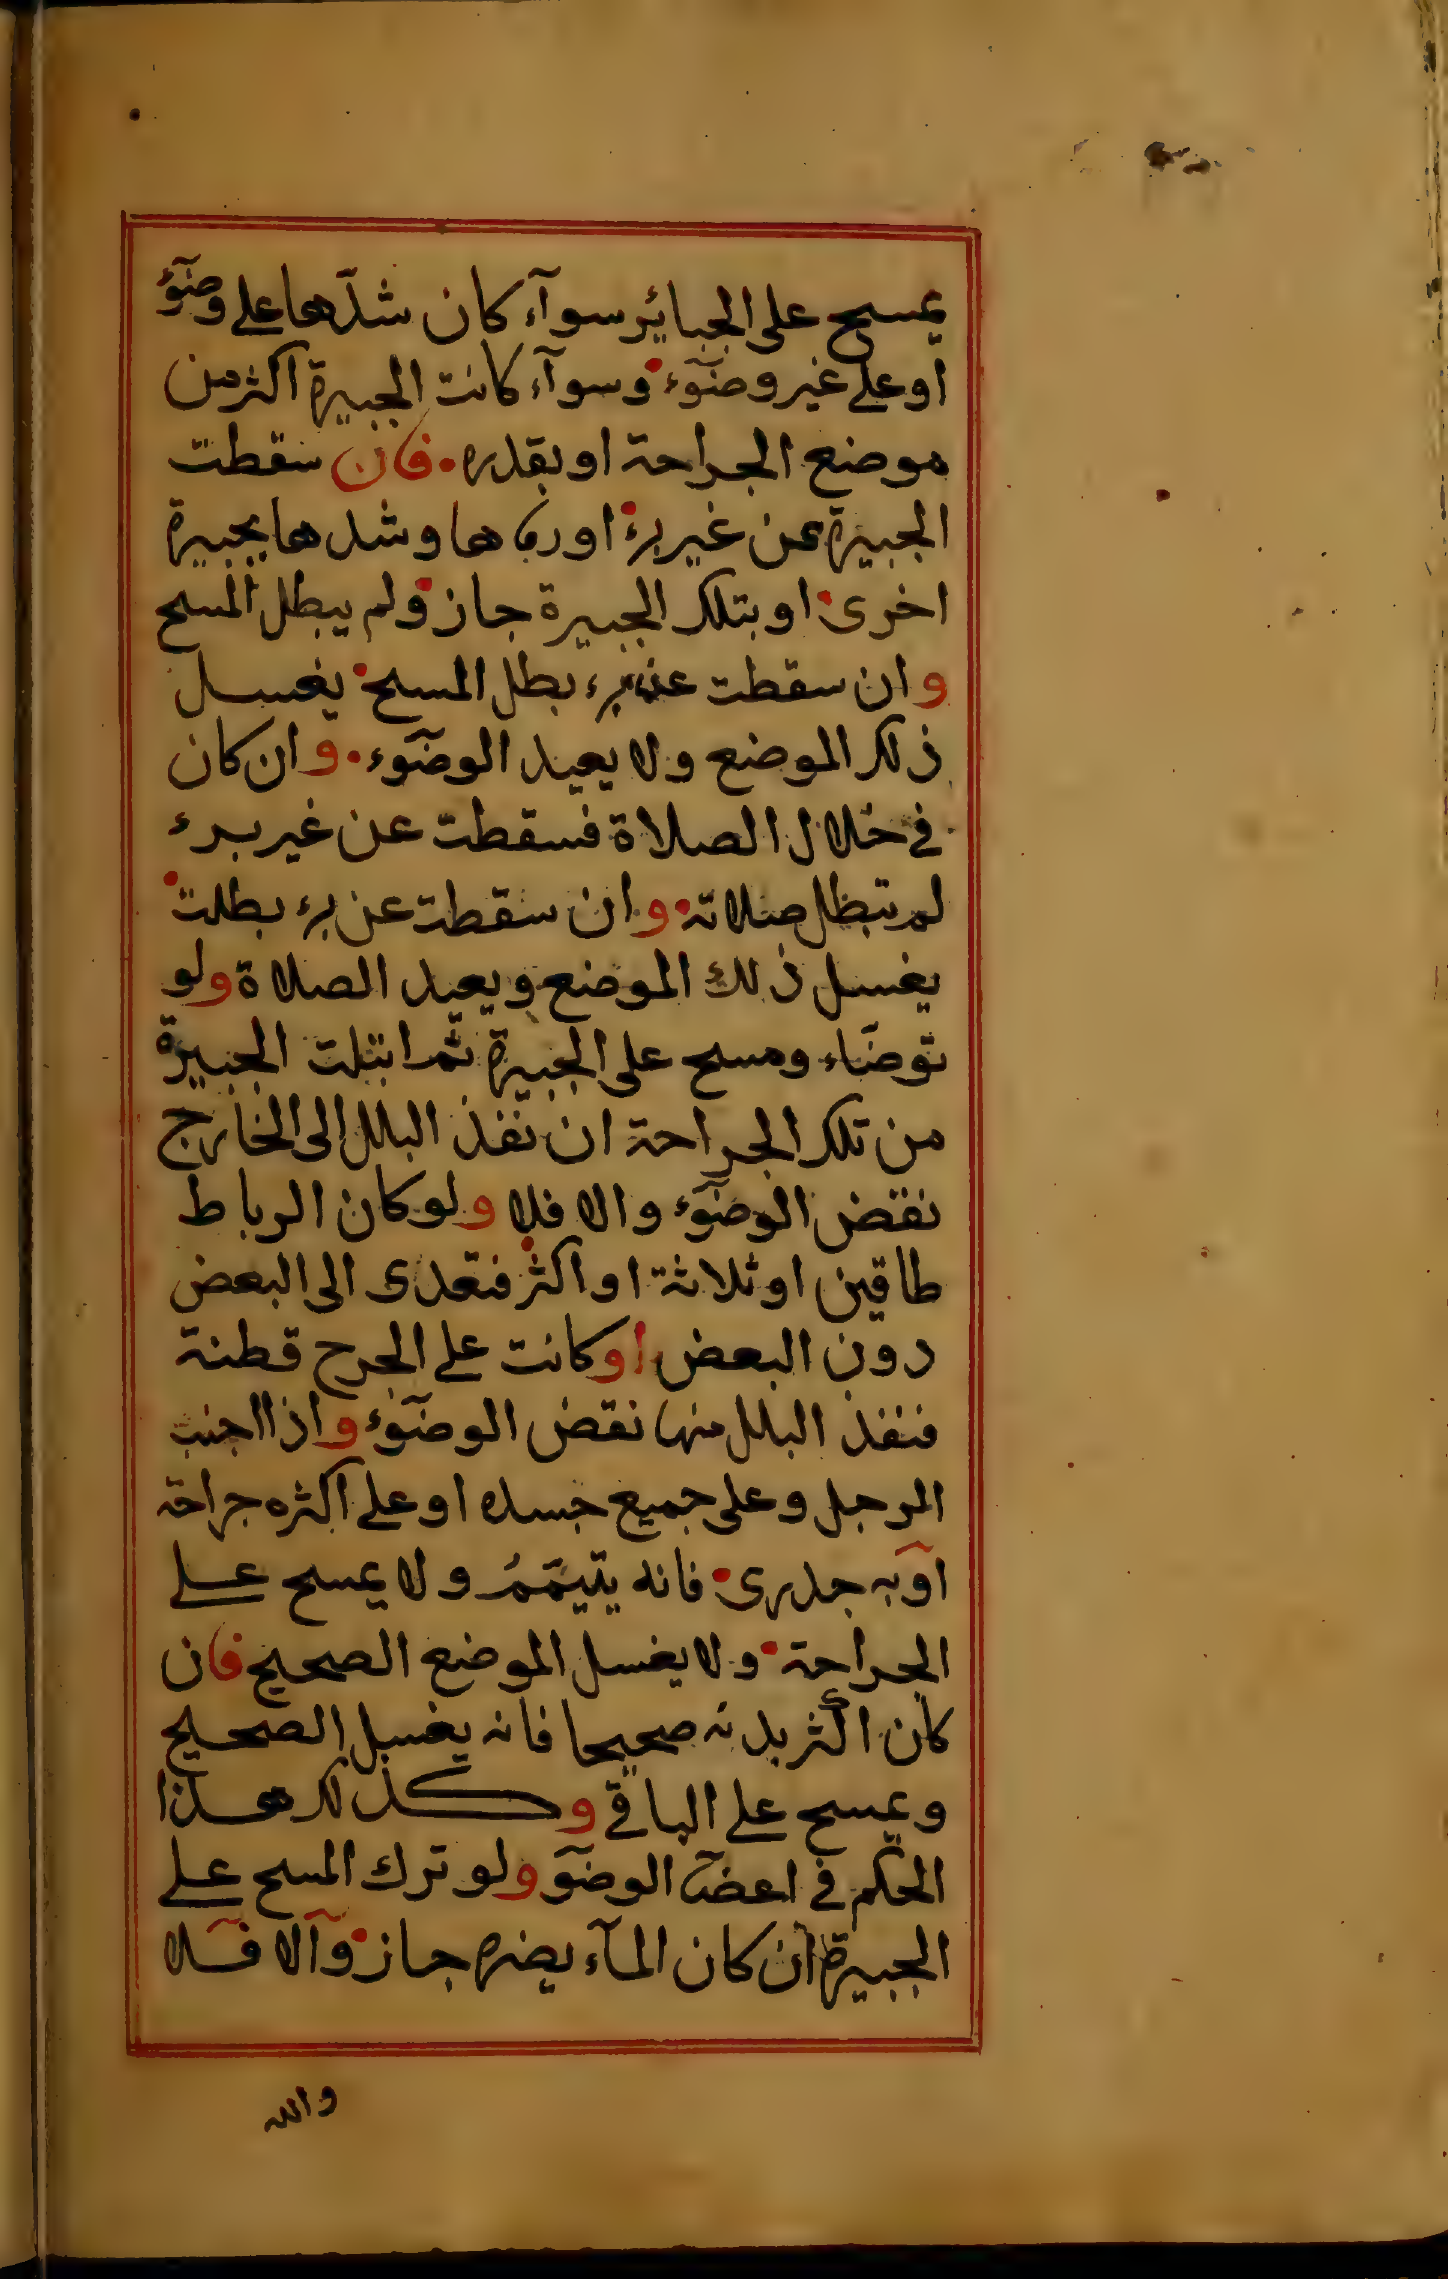 يمسح على الجبائر سوآء كان شدّها على وضوٓء
او على غير وضوٓء وسوآء كانت الجبيرة اكثر من
موضع الجراحة او بقدره فان سقطت
الجبيرة عن غير برء او رماها وشدها بجبيرة
اخرى او بتلك الجبيرة جاز ولم يبطل المسح
وان سقطت عن برء بطل المسح يغسل
ذلك الموضع ولا يعيد الوضوٓء وان كان
في خلال الصلاة فسقطت عن غير برء
لم تبطل صلاته وان سقطت عن برء بطلت
يغسل ذلك الموضع ويعيد الصلاة ولو
توضاء ومسح على الجبيرة ثم ابتلت الجبيرة
من تلك الجراحة ان نفذ البلل الى الخارج
نقض الوضوٓء والا فلا ولو كان الرباط
طاقين او ثلاثة او اكثر فتعدى الى البعض
دون البعض او كانت على الجرح قطنة
فنفذ البلل منها نقض الوضوٓء واذا اجنب
الرجل وعلى جميع جسده او على اكثره جراحة
او به جدرى فانه يتيمّم ولا يمسح على
الجراحة ولا يغسل الموضع الصحيح فان
كان اكثر بدنه صحيحا فانه يغسل الصحيح
ويمسح على الباقي وكذلك هذا
الحكم في اعضآ الوضوٓ ولو ترك المسح على
الجبيرة ان كان المآء يضره جاز وآلا فلا
والله